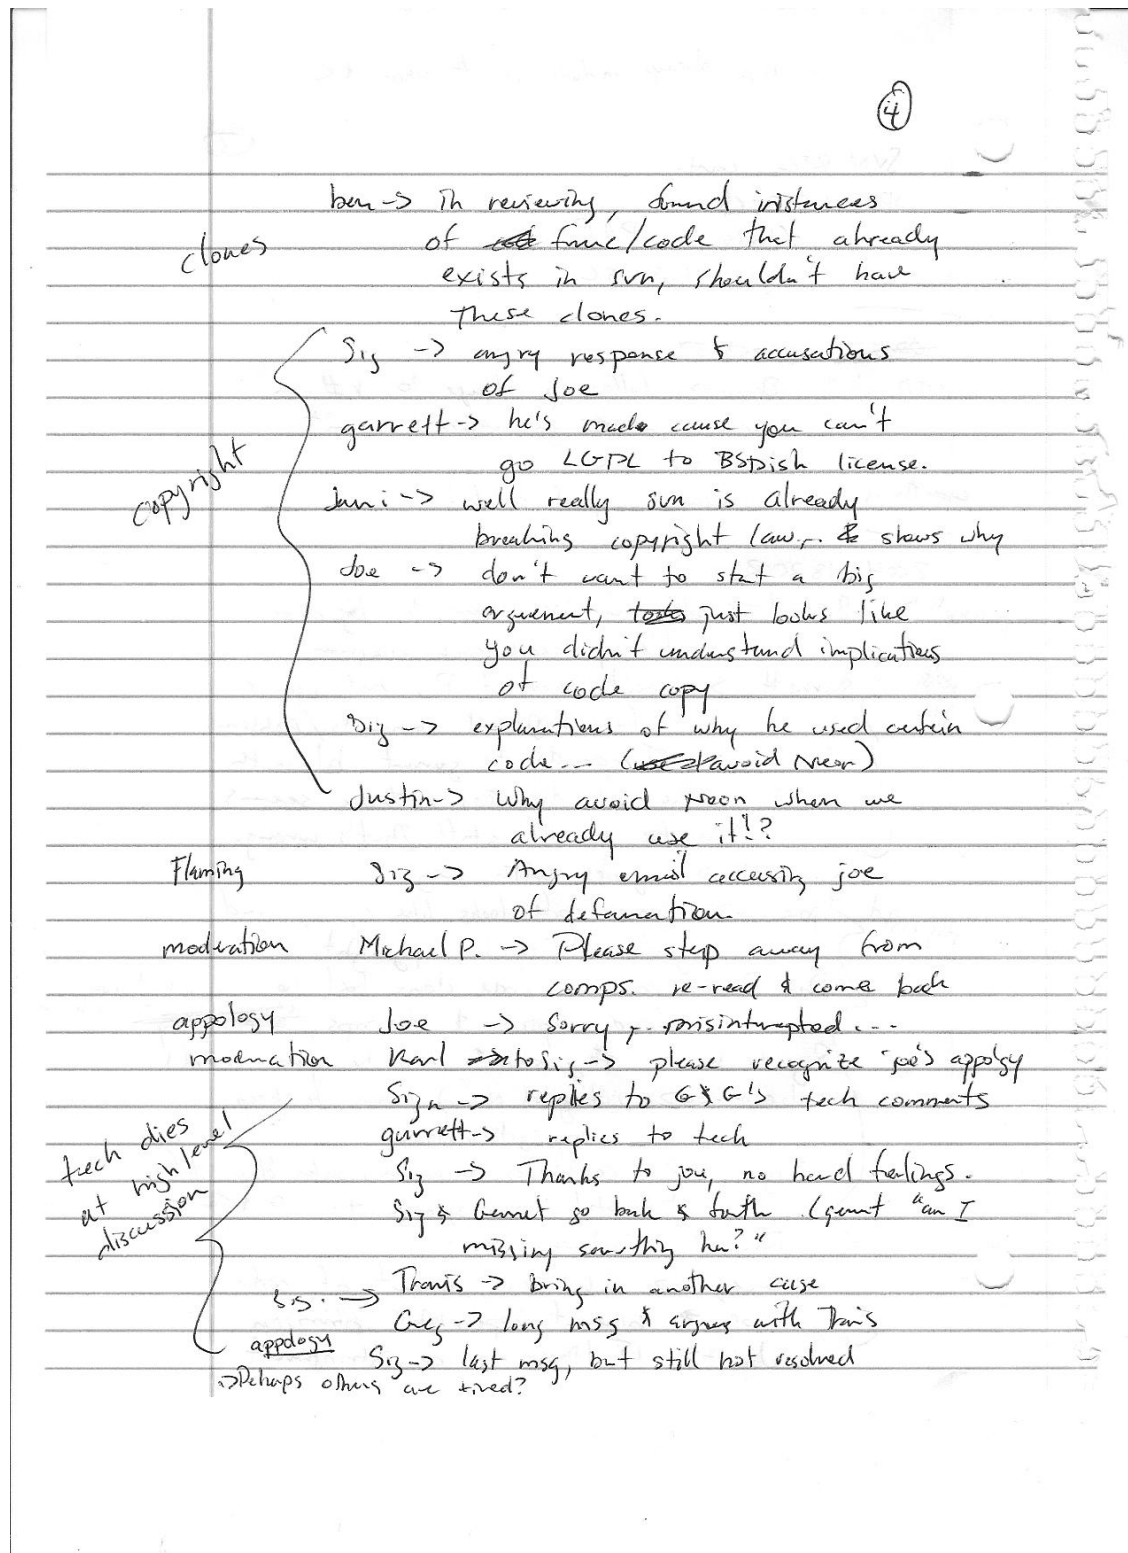 4
ben -> in reviewing, found instances
clones
of func/code that already
exists in svn, shouldn't have
these clones.
Sig -> angry response & accusations
of Joe
garrett -> he's made cause you can't
go LGPL to BSDish license.
copyright
Jani -> well really svn is already
breaking copyright law... & shows why
Joe -> don't want to start a big
arguement, just looks like
you didn't understand implications
of code copy
Sig -> explanations of why he used certain
code... (avoid Neon)
Justin -> Why avoid Neon when we
already use it!?
Flaming Sig -> Angry email accusing joe
of defamation.
moderation Michael P. -> Please step away from
comps. re-read & come back
appology Joe -> Sorry, misinterpted...
moderation Karl to Sig -> please recognize joe's appolgy
Sig -> replies to G&G's tech comments
garrett -> replies to tech
tech dies
at high level
discussion
Sig -> Thanks to joe, no hard feelings.
Sig & Garret go back & forth (garret "am I
missing something here?"
Travis -> bring in another case
Sig. ->
Greg -> long msg & argues with Travis
appology
Sig -> last msg, but still not resolved
->Perhaps others are tired?